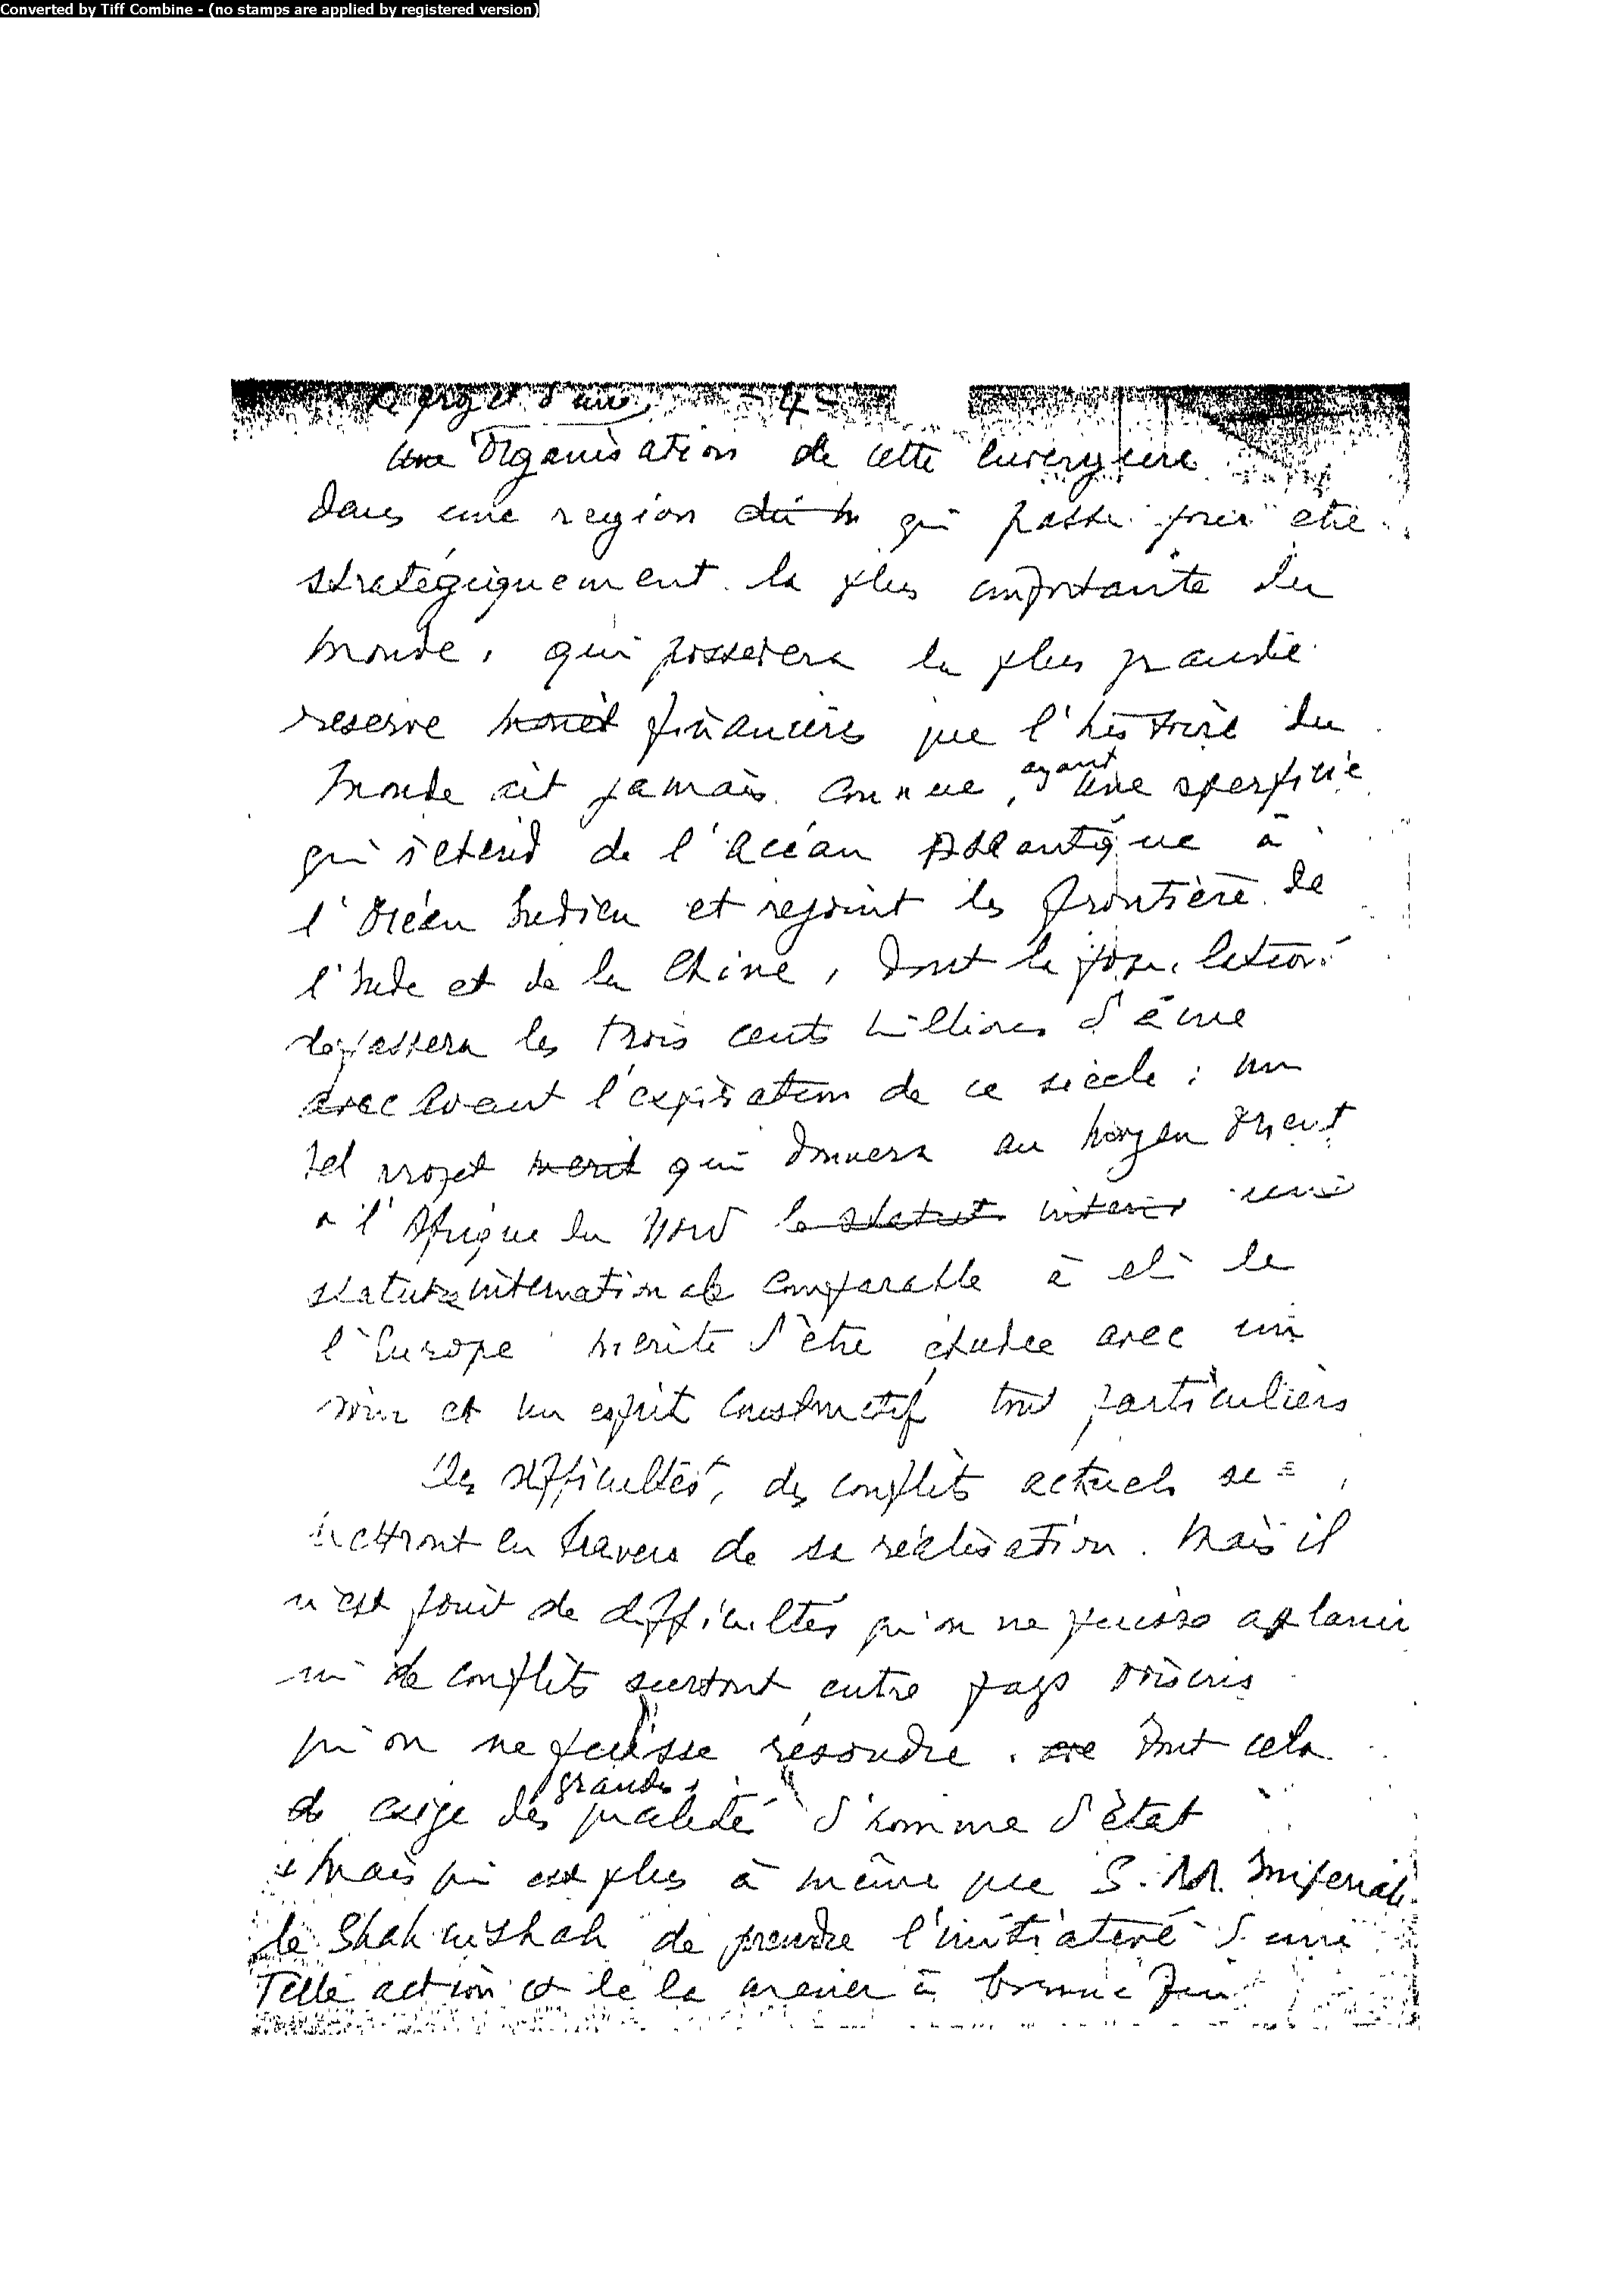 Converted by Tiff Combine - (no stamps are applied by registered version)
Le projet d'une - 4 -
Une Organisation de cette envergure
dans une region du m qui passe pour etre
stratégiquement la plus importante du
monde, qui possedera la plus grande
reserve monét financière que l'histoire du
monde ait jamais connue, ayant une sperficie
qui s'etend de l'Océan Atlantique à
l'Océan Indien et rejoint les frontière de
l'Inde et de la Chine, dont la population
depassera les trois cents millions d'âme
avec avant l'expiration de ce siècle; un
tel projet merit qui donnera au Moyen Orient
a l'Afrique du Nord le statut inter une
stature internationale comparable à de
l'Europe merite d'être étudee avec un
soin et un esprit constructif tout particuliers
Des difficultés, des conflits actuels se =
mettront en travers de sa réalisation. Mais il
n'est point de difficultés qu'on ne puisse aplanir
ni de conflits surtout entre pays voisins
qu'on ne puisse résoudre. Tout cela
exige des grandes qualités d'homme d'état
Mais qui est plus à même que S. M. Imperiale
le Shahinshah de prendre l'initiative d'une
Telle action et de la mener à bonne fin